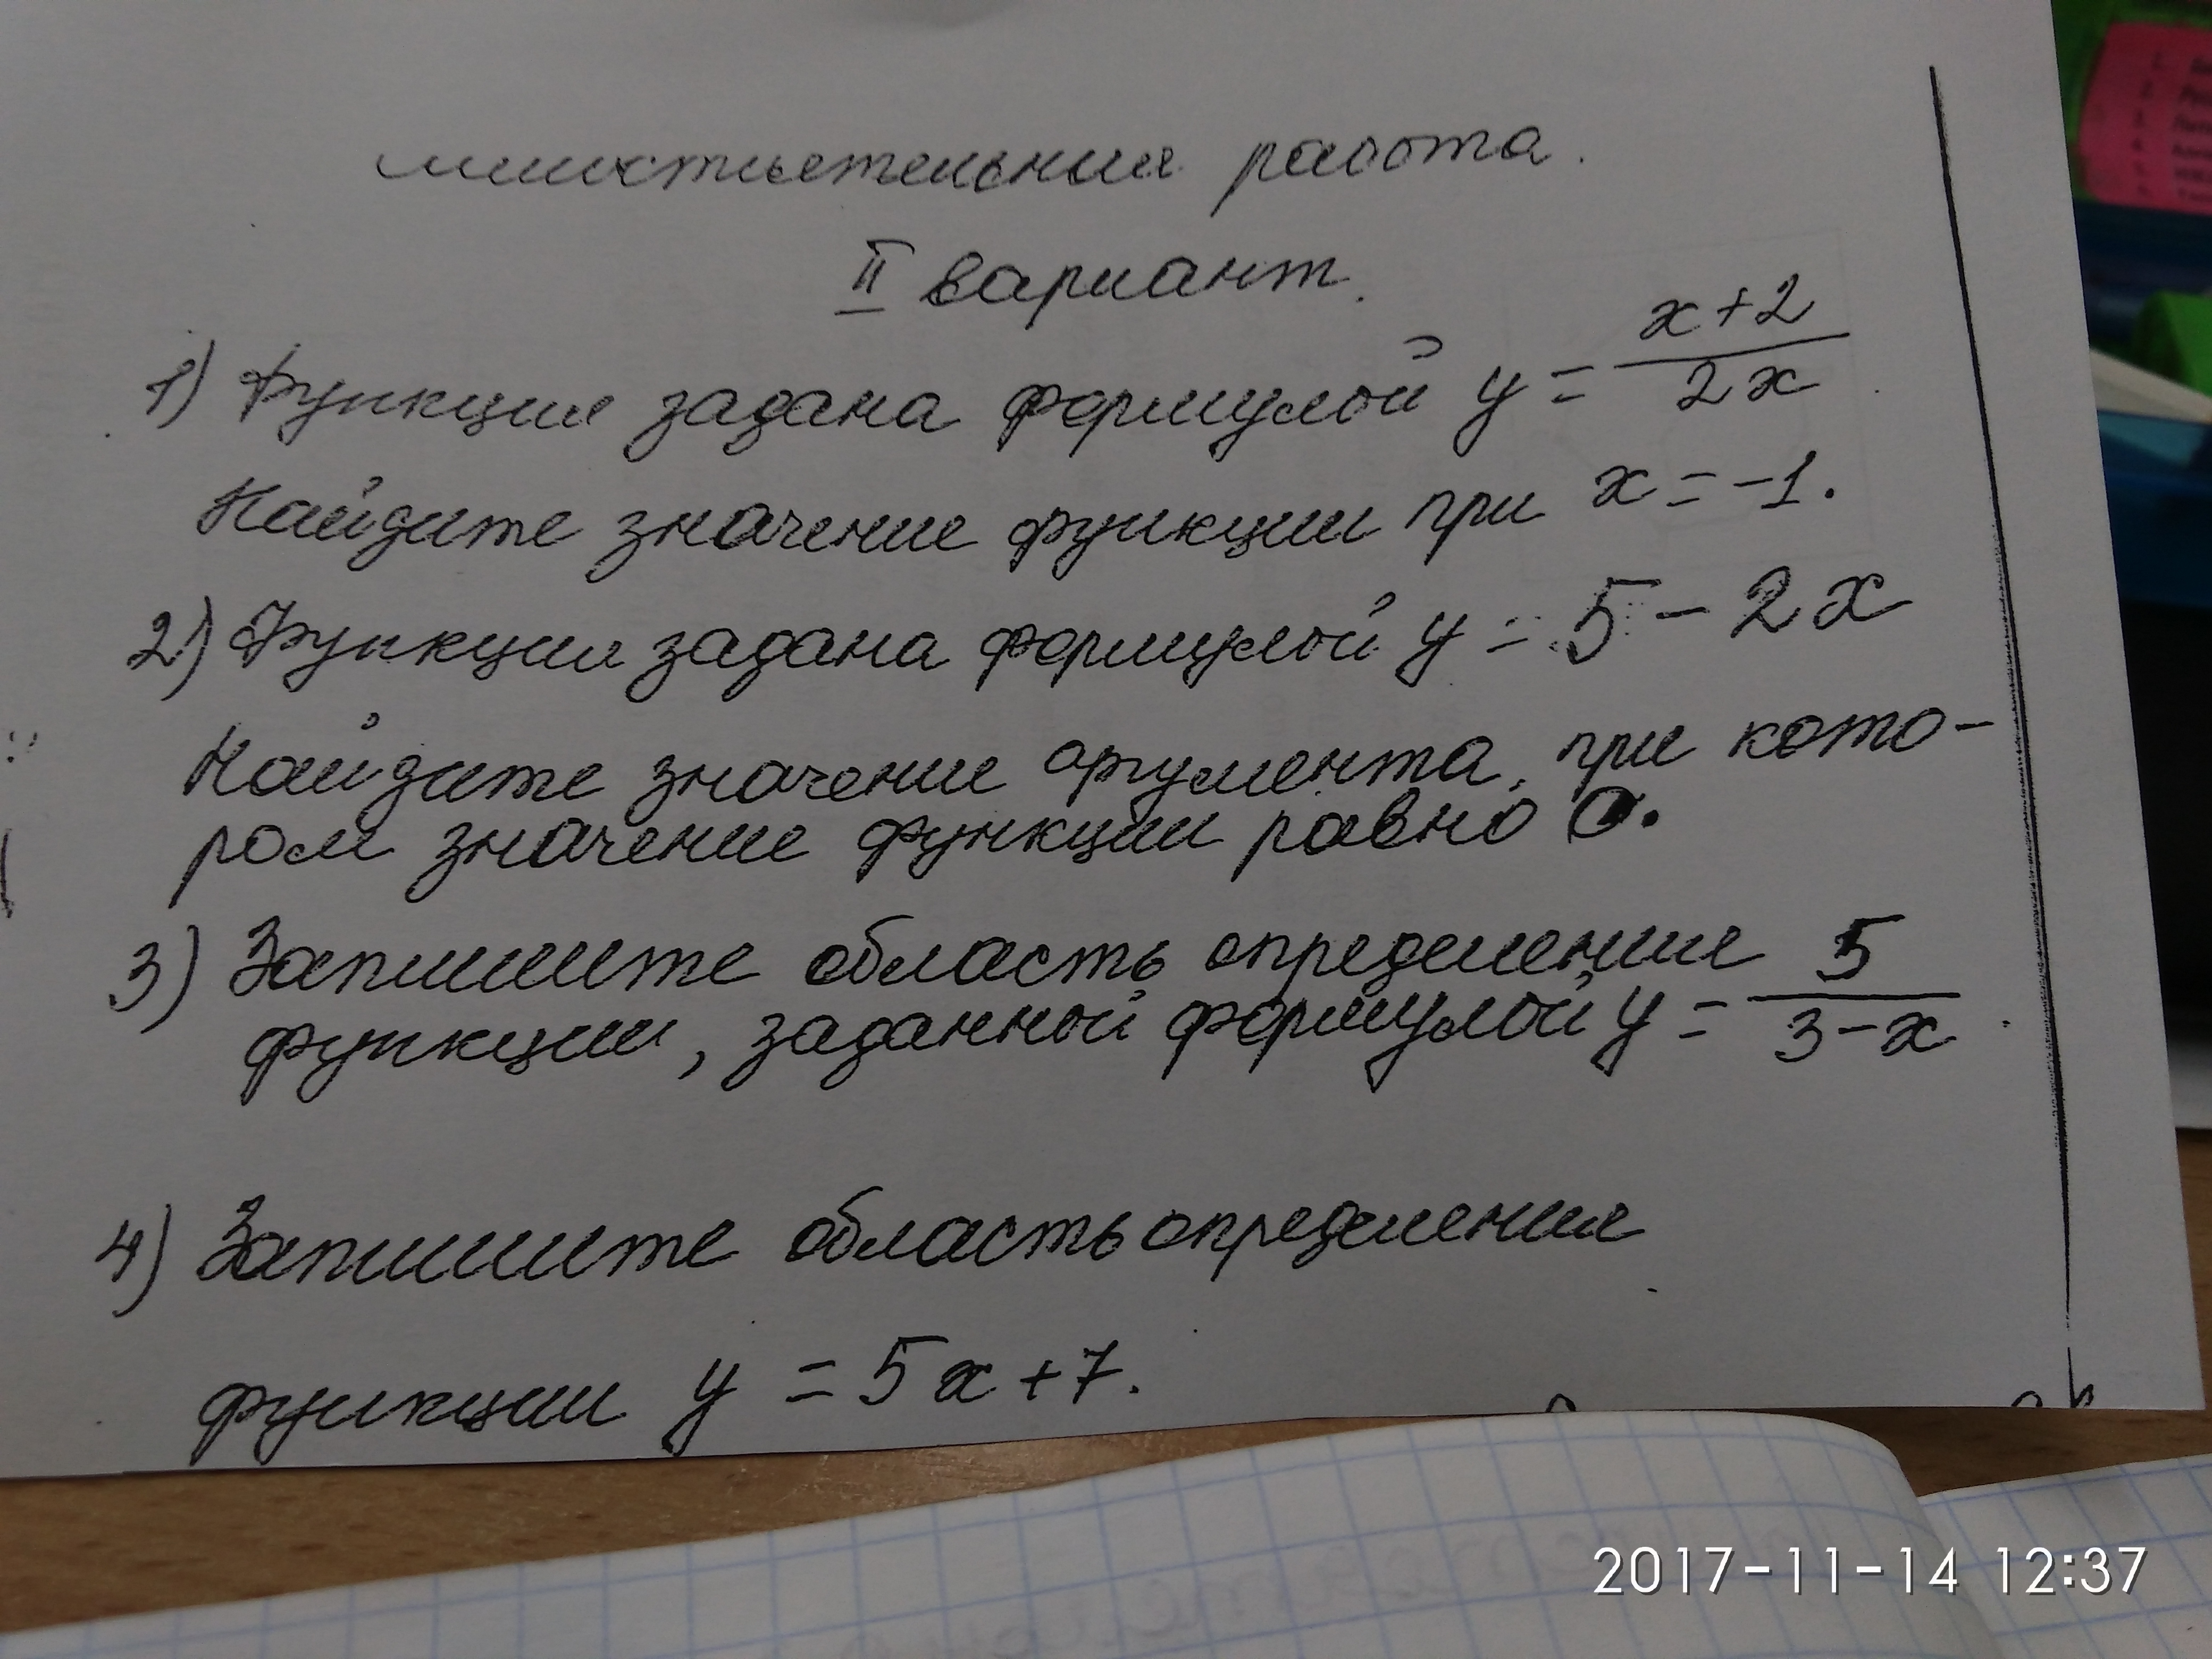 работа.
II вариант.
1) Функция задана формулой y = \frac{x+2}{2x}.
Найдите значение функции при x = -1.
2) Функция задана формулой y = 5 - 2x
Найдите значение аргумента, при кото-
ром значение функции равно 0.
3) Запишите область определения
функции, заданной формулой y = \frac{5}{3-x}.
4) Запишите область определения
функции y = 5x+7.
2017-11-14 12:37